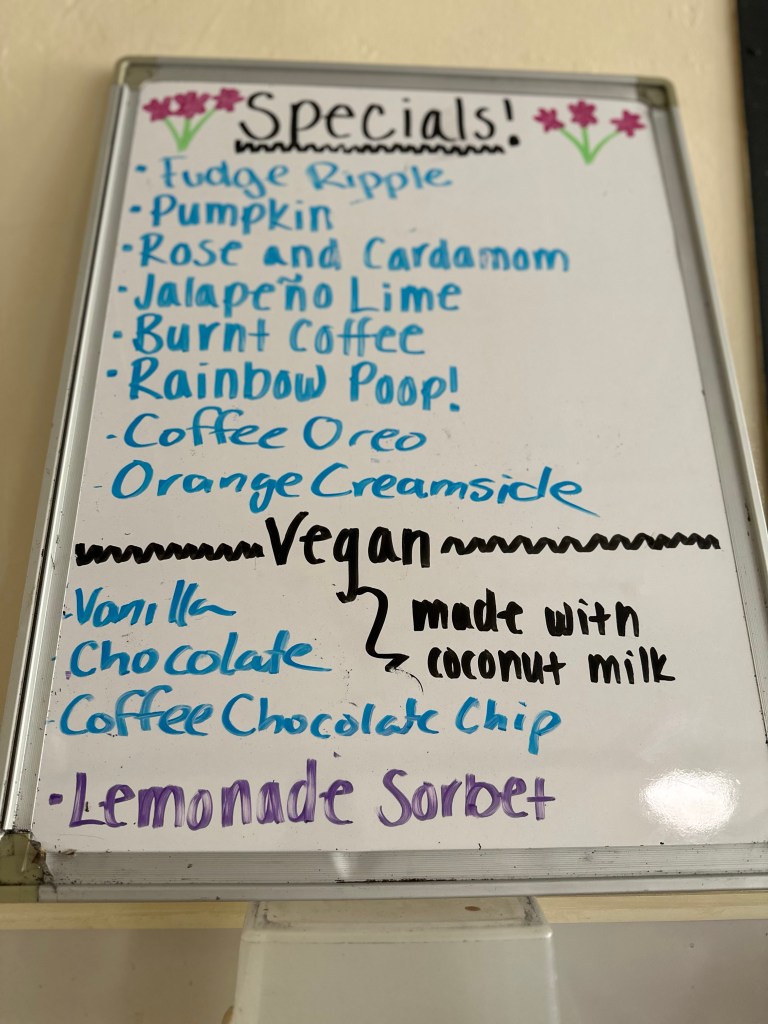 Specials!
• Fudge Ripple
• Pumpkin
• Rose and Cardamom
• Jalapeño Lime
• Burnt Coffee
• Rainbow Poop!
• Coffee Oreo
- Orange Creamside
Vegan
• Vanilla
• Chocolate
made with
coconut milk
• Coffee Chocolate Chip
• Lemonade Sorbet